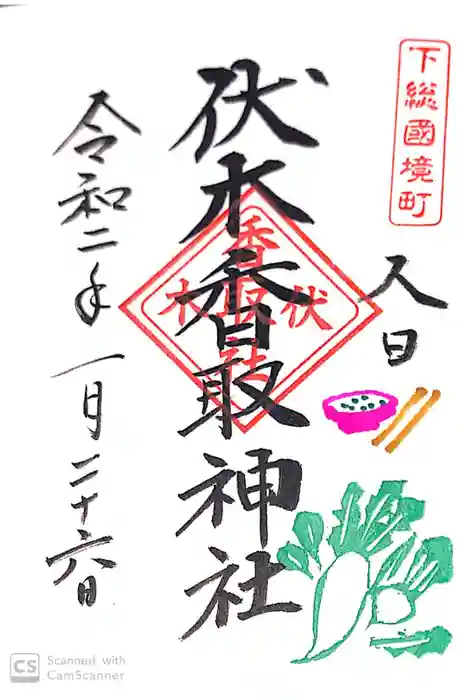 下総國境町
人日
伏木香取神社
伏木
香取
社
令和二年一月二十六日
CS Scanned with
CamScanner